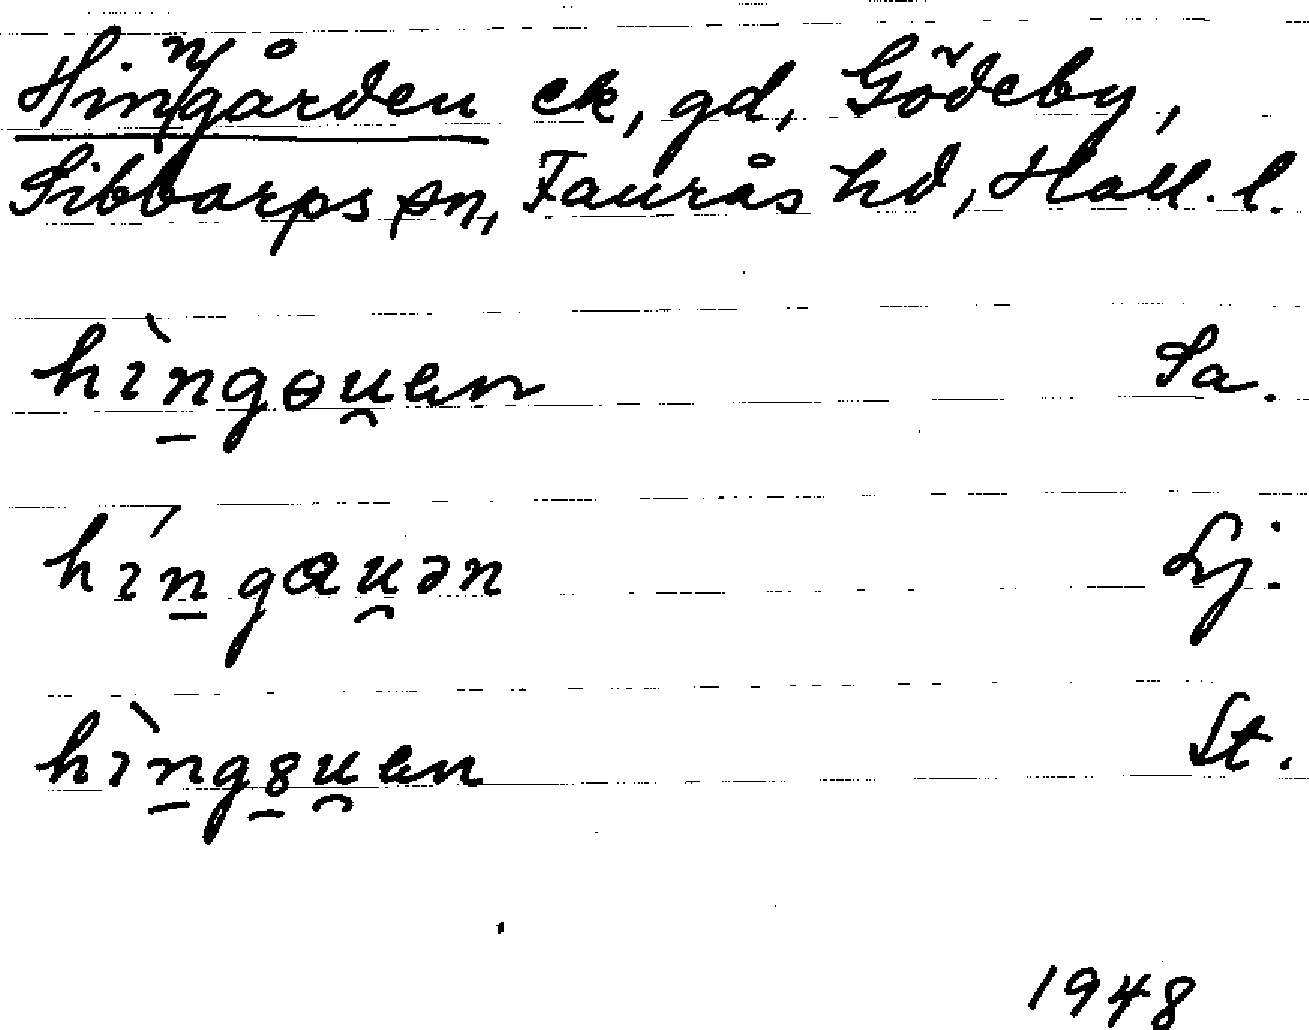 Hinngården ek, gd, Gödeby,
Sibbarps sn, Faurås hd, Hall. l.
hìn̠gɵu̯en Sa.
hín̠gɑu̯ən Lj.
hìn̠g8̠u̯en St.
1948